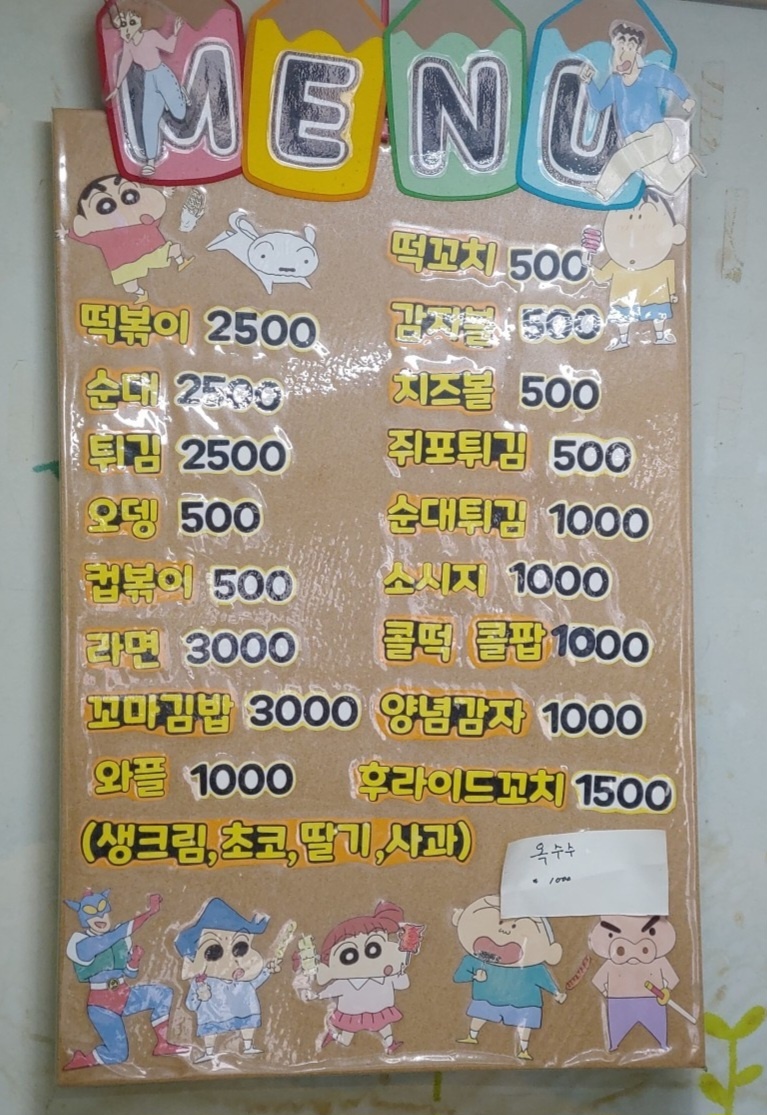 MENU
떡볶이 2500
순대 2500
튀김 2500
오뎅 500
컵볶이 500
라면 3000
꼬마김밥 3000
와플 1000
(생크림,초코,딸기,사과)
떡꼬치 500
감자볼 500
치즈볼 500
쥐포튀김 500
순대튀김 1000
소시지 1000
콜떡 콜팝 1000
양념감자 1000
후라이드꼬치 1500
옥수수
1000